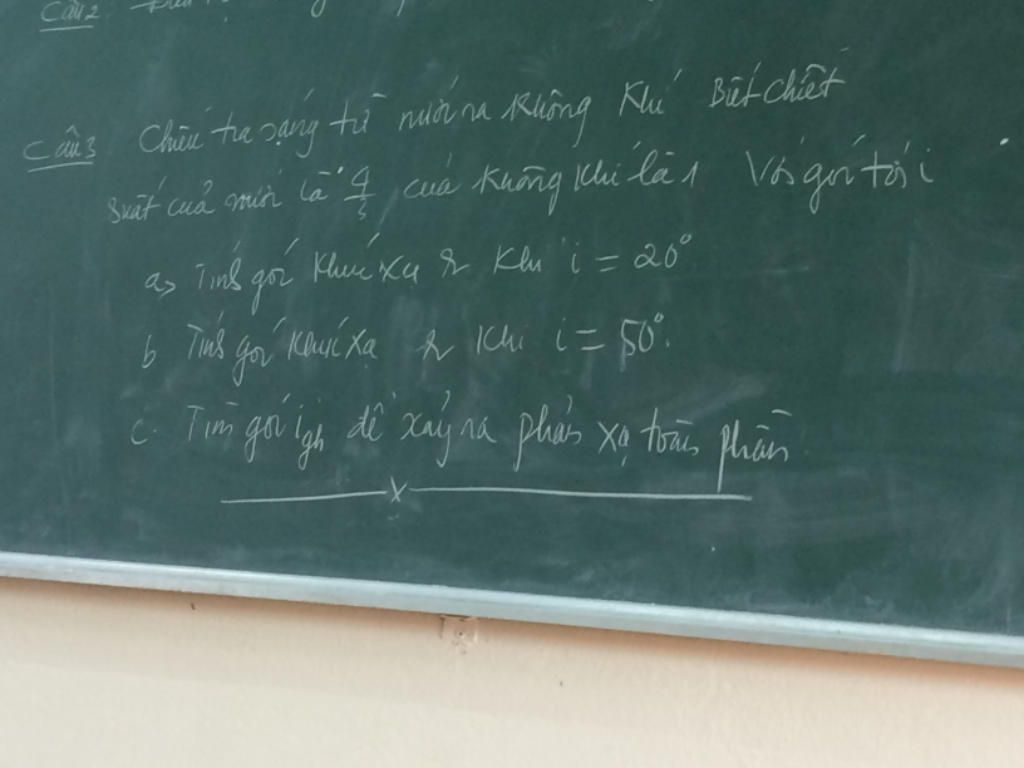 Câu 2
Câu 3 Chiếu tia sáng từ nước ra không khí Biết chiết
suất của nước là 4/3 của không khí là 1 Với góc tới i
a, Tính góc khúc xạ r khi i = 20°
b Tính góc khúc xạ r khi i = 50°.
c. Tìm góc igh để xảy ra phản xạ toàn phần
x